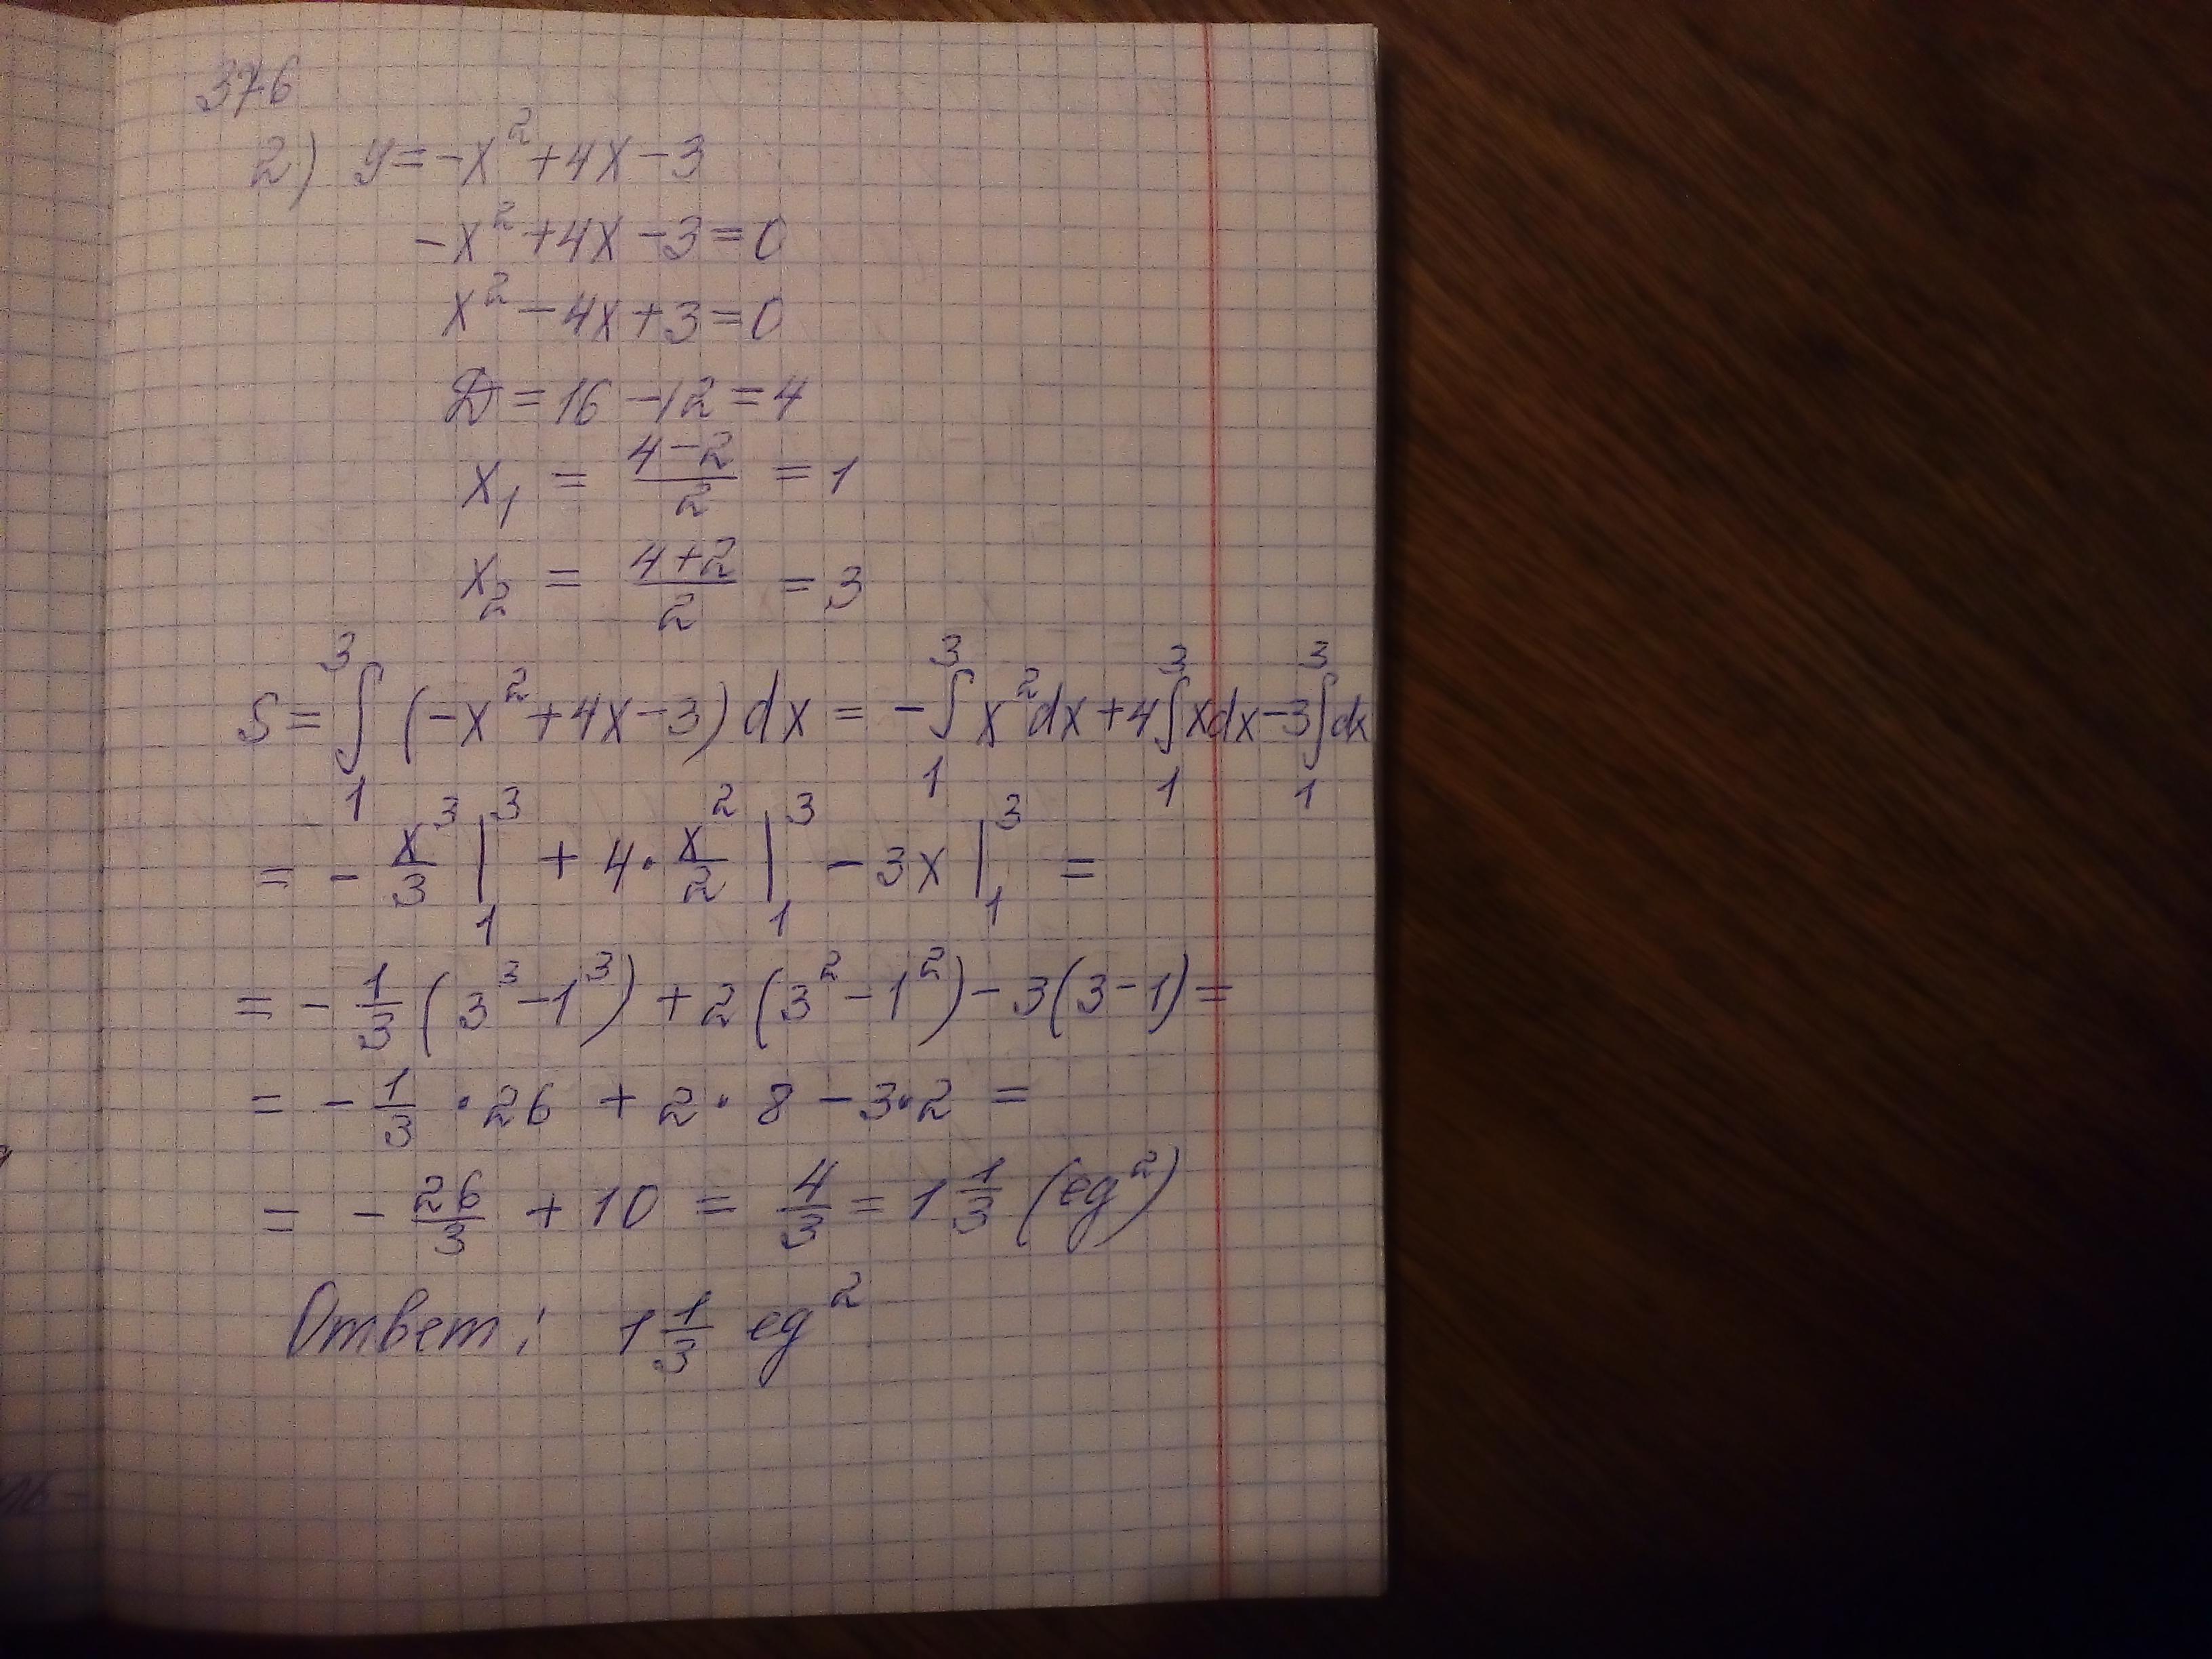 376
2) y=-x²+4x-3
-x²+4x-3=0
x²-4x+3=0
D=16-12=4
x₁ = (4-2)/2 = 1
x₂ = (4+2)/2 = 3
S=∫₁³(-x²+4x-3)dx = -∫₁³x²dx+4∫₁³xdx-3∫₁³dx
= - x³/3 |₁³ + 4·x²/2 |₁³ - 3x |₁³ =
= - 1/3 (3³-1³) + 2(3²-1²) - 3(3-1) =
= - 1/3 · 26 + 2·8 - 3·2 =
= - 26/3 + 10 = 4/3 = 1 1/3 (ед²)
Ответ: 1 1/3 ед²